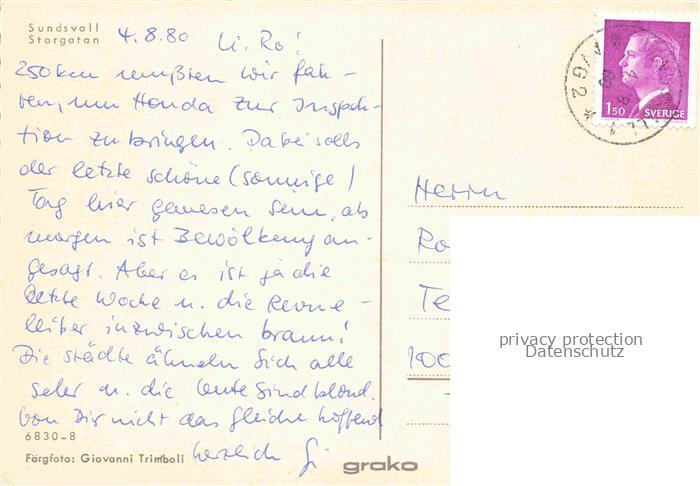 Sundsvall
Storgatan
4.8.80 Li. Ro!
250 km mußten wir fah-
ren, um Honda zur Inspek-
tion zu bringen. Dabei solls
der letzte schöne (sonnige)
Tag hier gewesen sein, ab
morgen ist Bewölkung an-
gesagt. Aber es ist ja die
letzte Woche u. die Revue-
leiber inzwischen braun!
Die Städte ähneln sich alle
sehr u. die Leute sind blond.
Von Dir nicht das Gleiche hoffend
herzlich
6830-8
Färgfoto: Giovanni Trimboli
grako
1.50 SVERIGE
Herrn
Ro
Te
100
privacy protection
Datenschutz